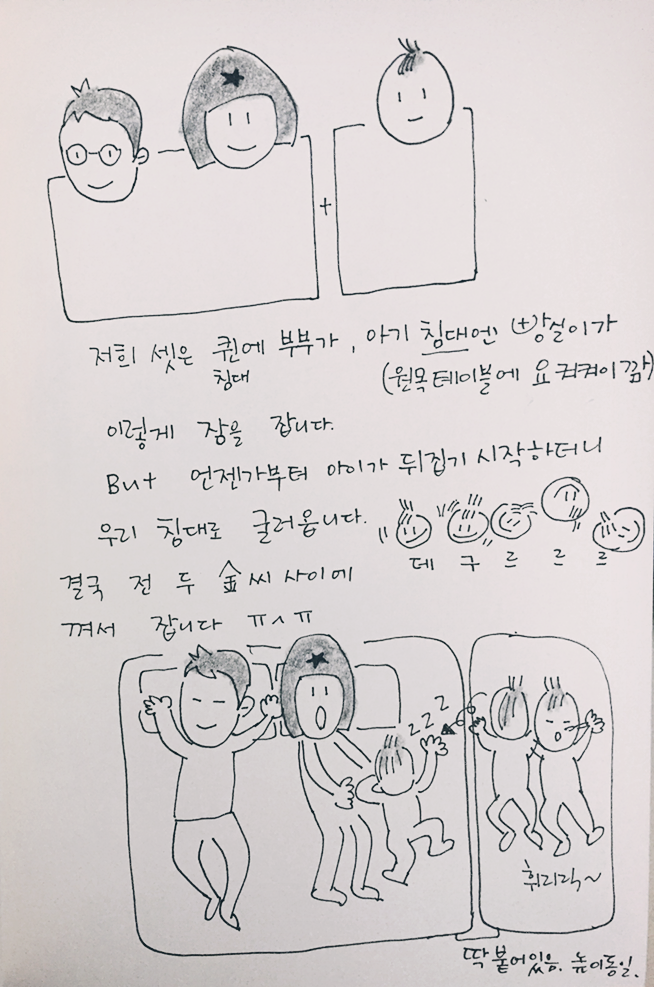 +
저희 셋은 퀸에 부부가, 아기 침대엔 (+)방실이가
침대
(원목테이블에 요 켜켜이깖)
이렇게 잠을 잡니다.
But 언젠가부터 아이가 뒤집기 시작하더니
우리 침대로 굴러옵니다.
데 구 르 르 르
결국 전 두 金씨 사이에
껴서 잡니다 ㅠㅅㅠ
z z z
휘리릭~
딱 붙어있음. 높이동일.